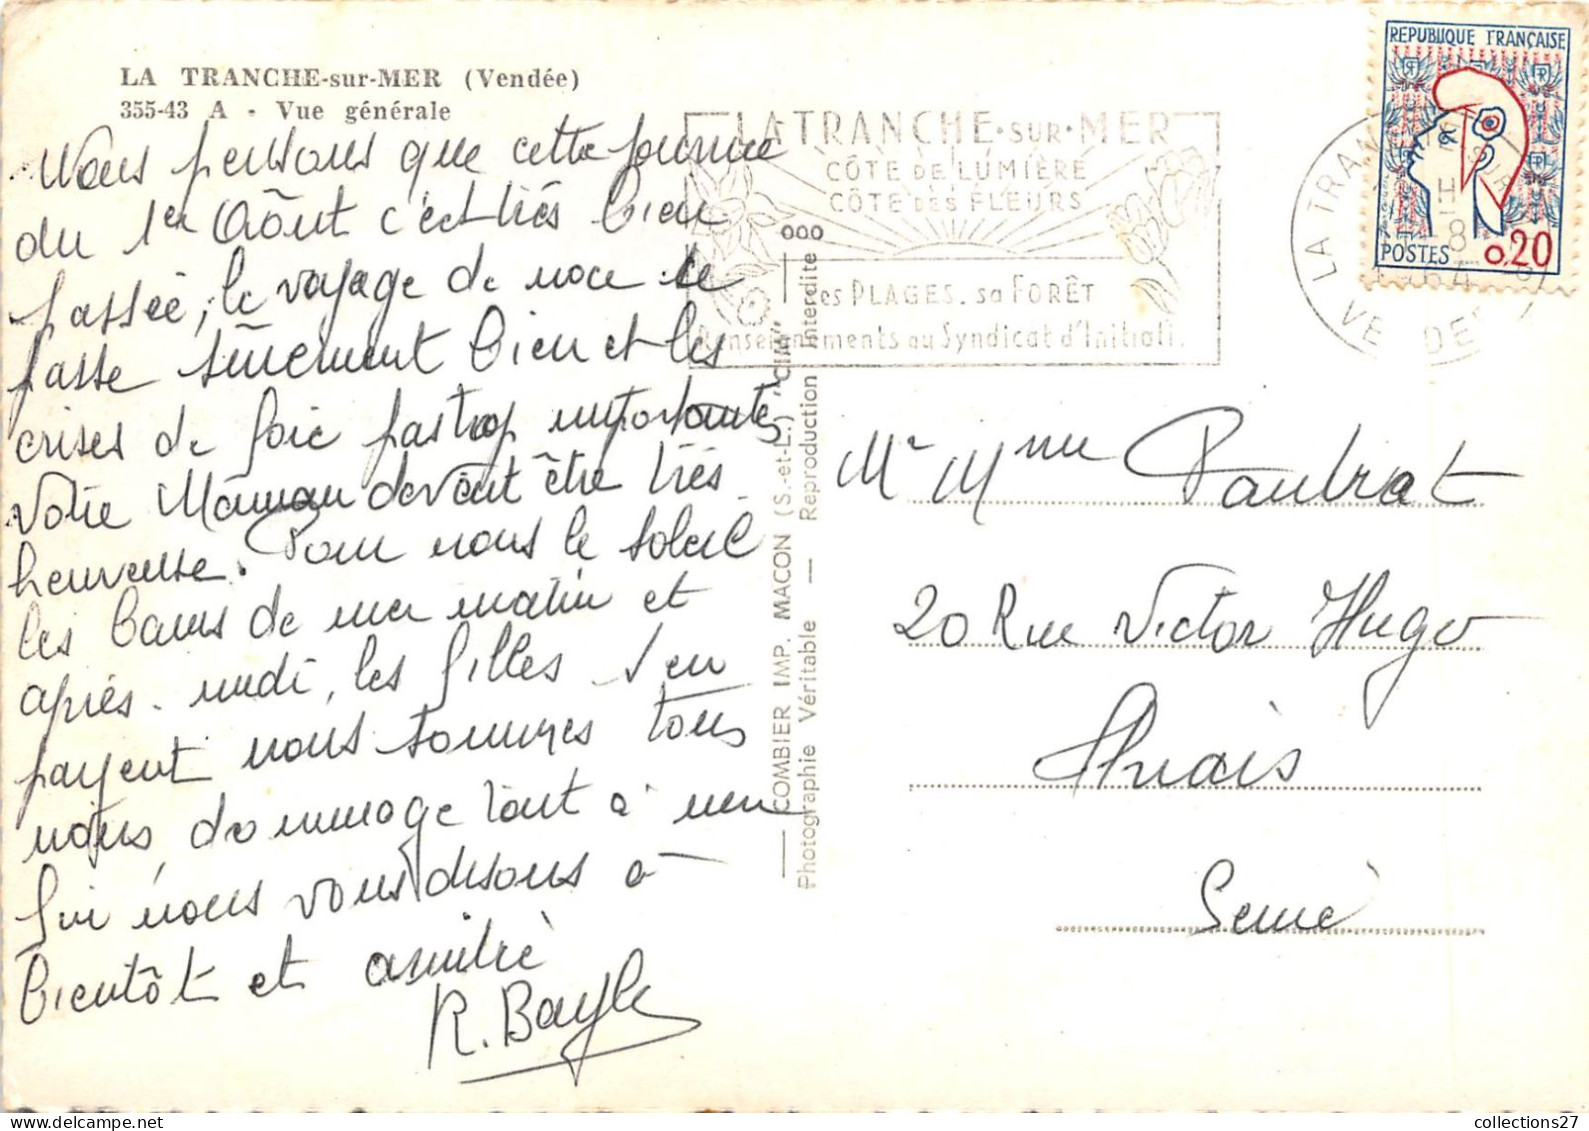 LA TRANCHE-sur-MER (Vendée)
355-43 A - Vue générale
Nous pensons que cette journée
du 1er Août c'est très bien
passée, le voyage de noce se
passe sûrement bien et les
crises de foie pas trop importantes
votre Maman devait être très
heureuse. Pour nous le soleil
les bains de mer matin et
après-midi, les filles s'en
payent nous sommes tous
noirs, dommage tout à une
fin nous vous disons à
bientôt et amitié
R. Bayle
COMBIER IMP. MACON (S.-et-L.) "CIM"
Photographie Véritable — Reproduction Interdite
LA TRANCHE·SUR·MER
CÔTE DE LUMIÈRE
CÔTE DES FLEURS
ses PLAGES. sa FORÊT
Renseignements au Syndicat d'Initiati.
LA TRANCHE SUR MER
8
1964
VENDEE
REPUBLIQUE FRANÇAISE
POSTES 0,20
Mr Mme Pautrat
20 Rue Victor Hugo
Thiais
Seine
collections27